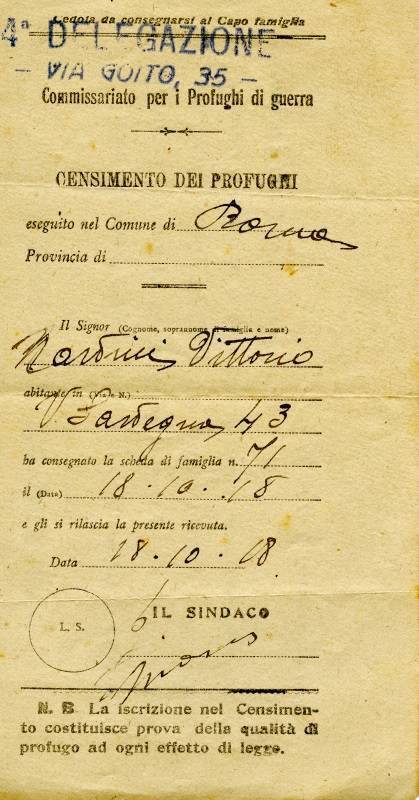 Cedola da consegnarsi al Capo famiglia
4ª DELEGAZIONE
— VIA GOITO, 35 —
Commissariato per i Profughi di guerra
CENSIMENTO DEI PROFUGHI
eseguito nel Comune di Roma
Provincia di
Il Signor (Cognome, soprannome di famiglia e nome)
Nardini Vittorio
abitante in (Via e N.)
V. Sardegna 43
ha consegnato la scheda di famiglia n. 71
il (Data) 18 . 10 . 18
e gli si rilascia la presente ricevuta.
Data 18 . 10 . 18
L. S.
IL SINDACO
N. B. La iscrizione nel Censimen-
to costituisce prova della qualità di
profugo ad ogni effetto di legge.